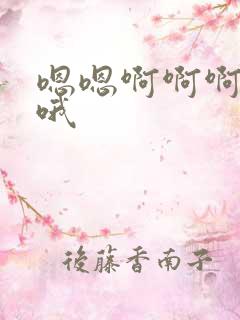 嗯嗯啊啊啊
哦
後藤香南子